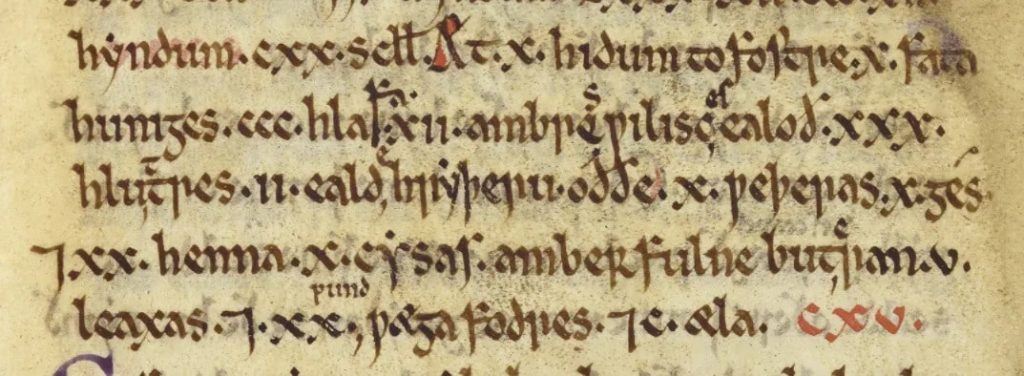 hyndum. cxx. scll. Æt. x. hidum to fostre. x. fata
huniges. ccc. hlafa. xii. ambres ƿilisces ealoð. xxx.
hluttres. ii. ealde hryþeru. oððe. x. ƿeþeras. x. gés.
⁊ xx. henna. x. cysas. amber fulne buteran. v.
leaxas. ⁊. xx. pund ƿæga fodres. ⁊ c. æla. cxv.